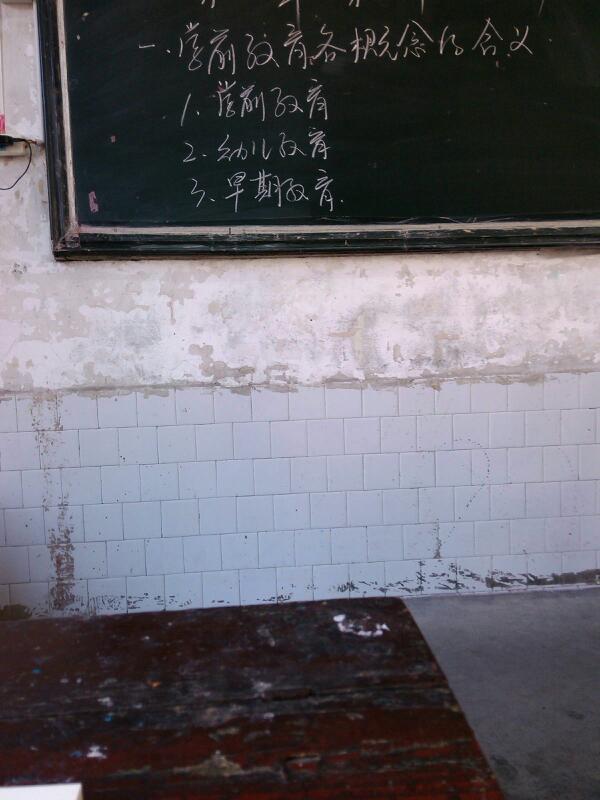 一、学前教育各概念的含义
1. 学前教育
2. 幼儿教育
3. 早期教育.